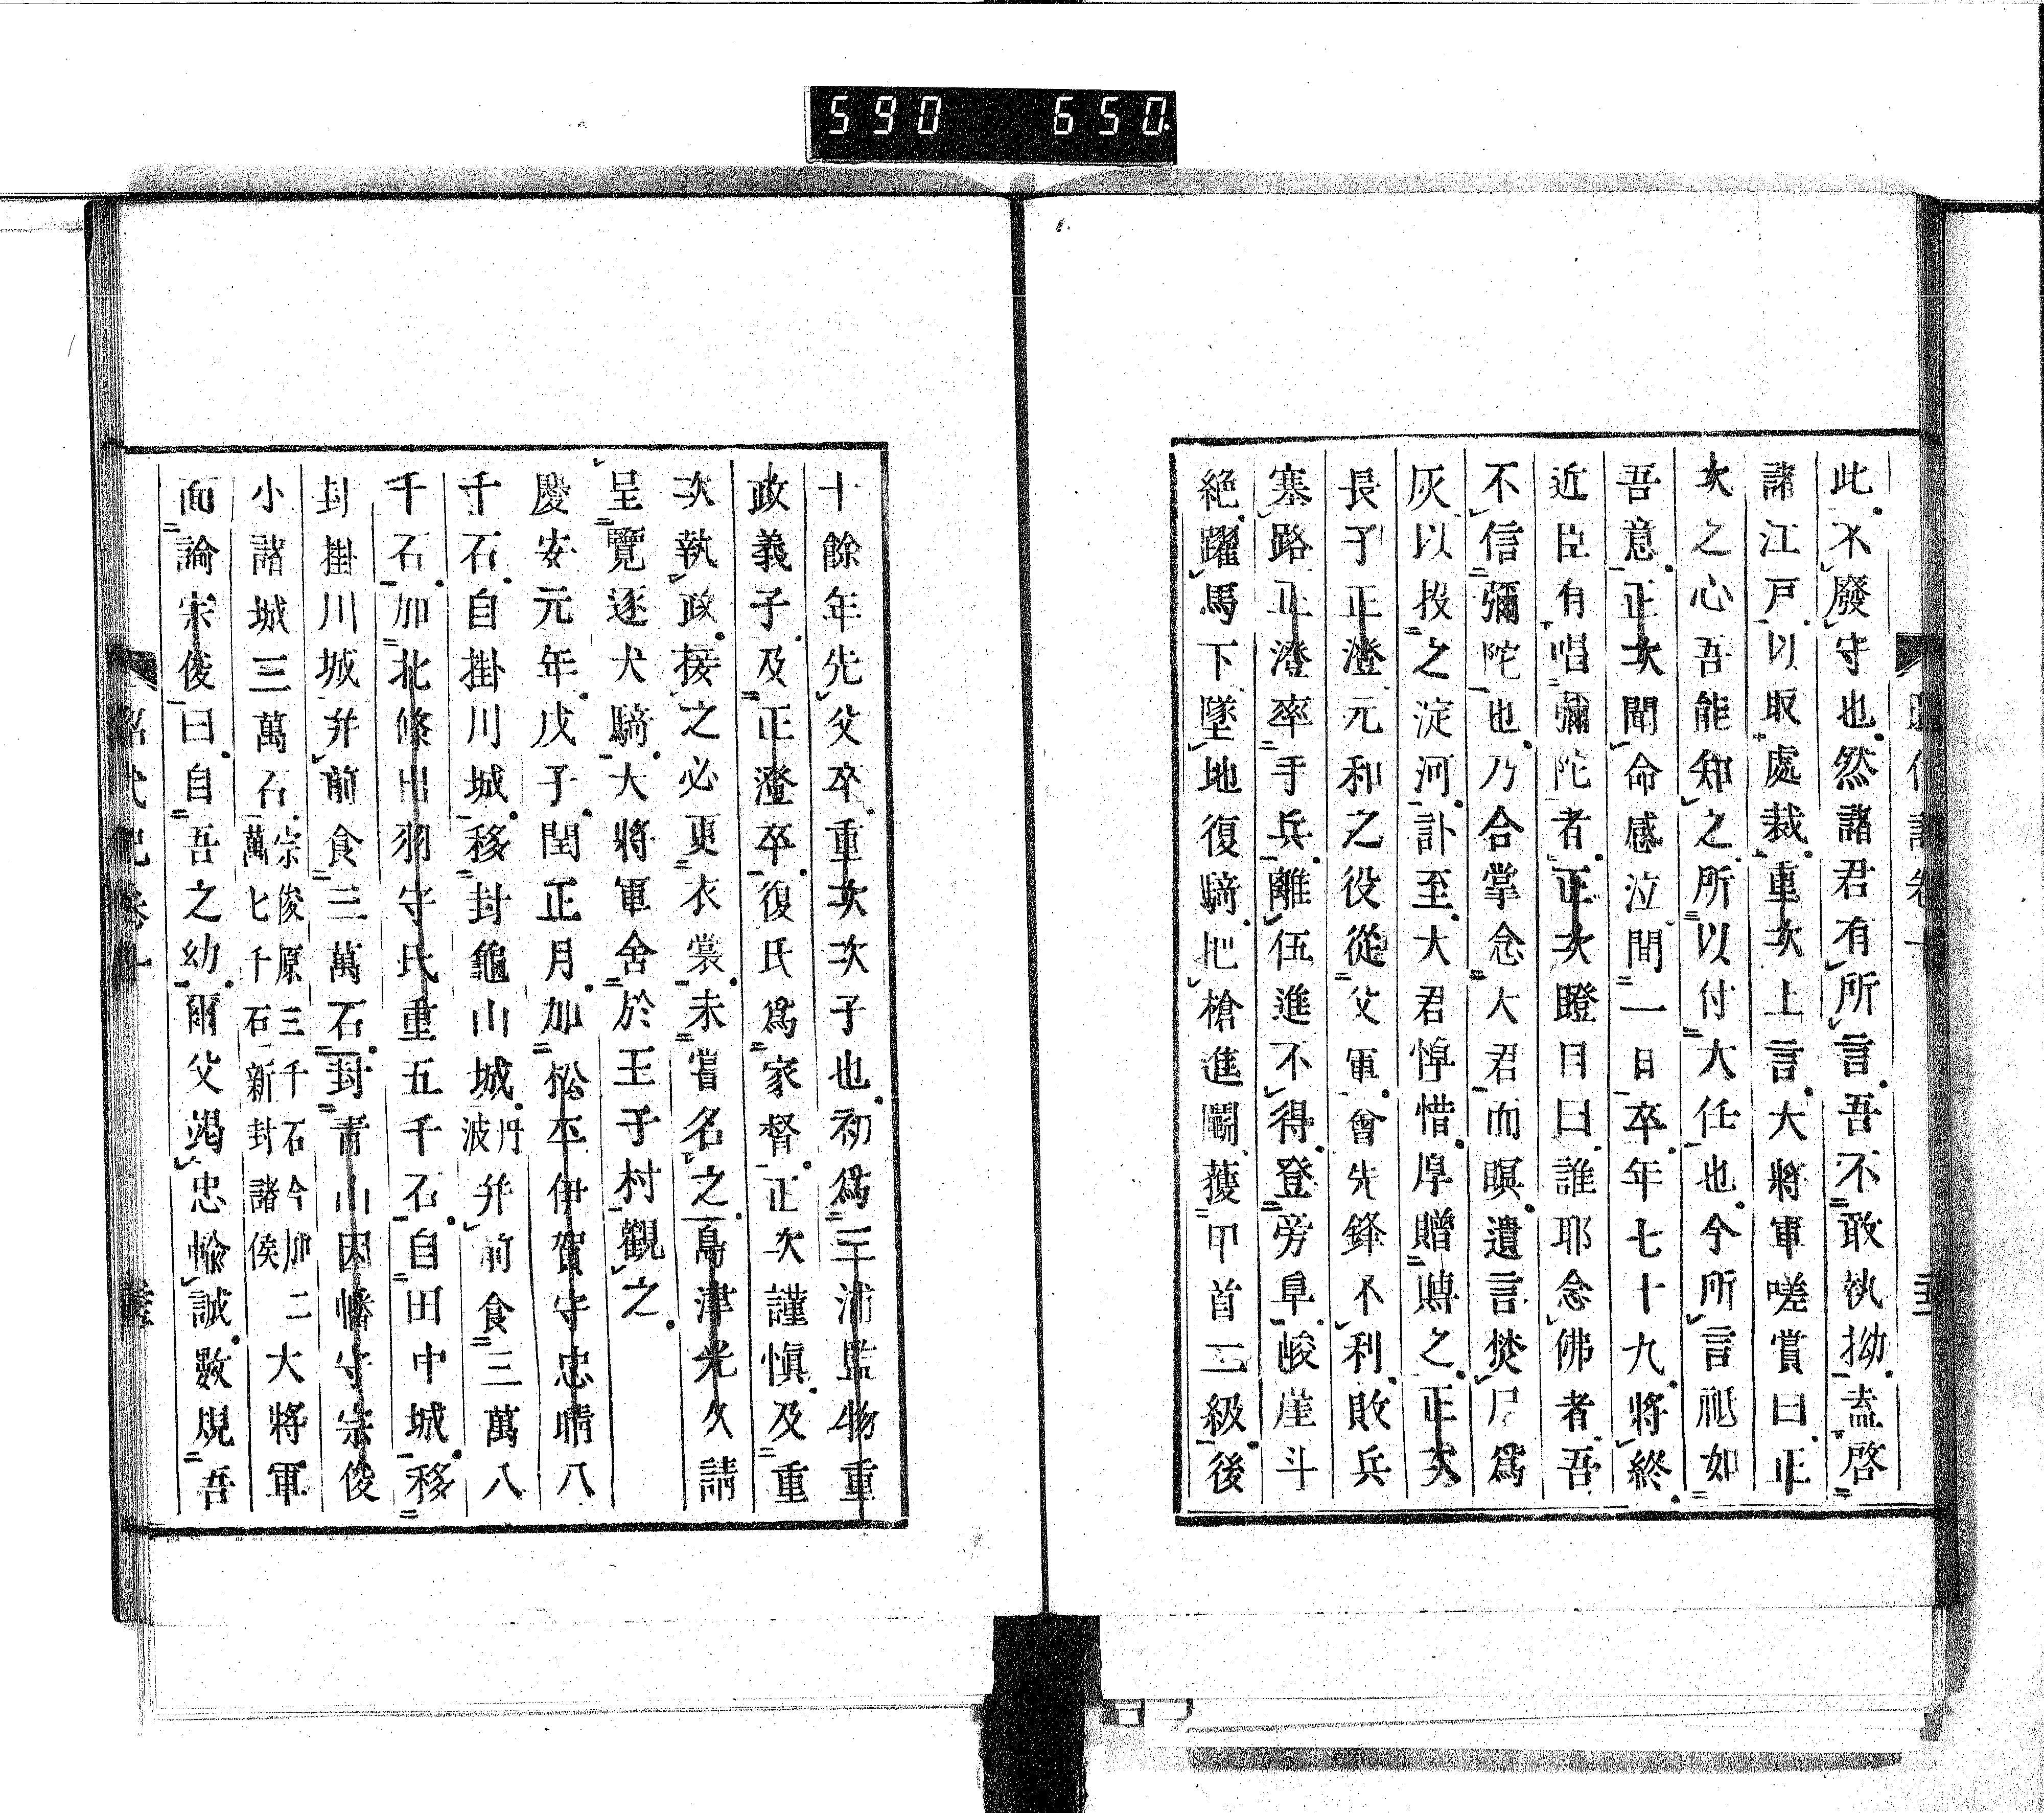 590 650
此不廢守也然諸君有所言吾不敢執拗盍啓
諸江戸以取處裁重次上言大將軍嗟賞曰正
次之心吾能知之所以付大任也今所言祗如
吾意正次聞命感泣間一日卒年七十九將終
近臣有唱彌陀者正次瞪目曰誰耶念佛者吾
不信彌陀也乃合掌念大君而瞑遺言焚尸爲
灰以投之淀河訃至大君悼惜厚贈賻之正次
長子正澄元和之役從父軍會先鋒不利敗兵
塞路正澄率手兵離伍進不得登旁阜峻崖斗
絶躍馬下墜地復騎把槍進鬪獲甲首二級後
十餘年先父卒重次次子也初爲三浦監物重
政義子及正澄卒復氏爲家督正次謹愼及重
次執政接之必更衣裳未嘗名之島津光久請
呈覽逐犬騎大將軍舍於王子村觀之
慶安元年戊子閏正月加松平伊賀守忠晴八
千石自掛川城移封龜山城丹波并前食三萬八
千石加北條出羽守氏重五千石自田中城移
封掛川城并前食三萬石封青山因幡守宗俊
小諸城三萬石宗俊原三千石今加二萬七千石新封諸侯大將軍
面諭宗俊曰自吾之幼爾父竭忠愉誠數規吾